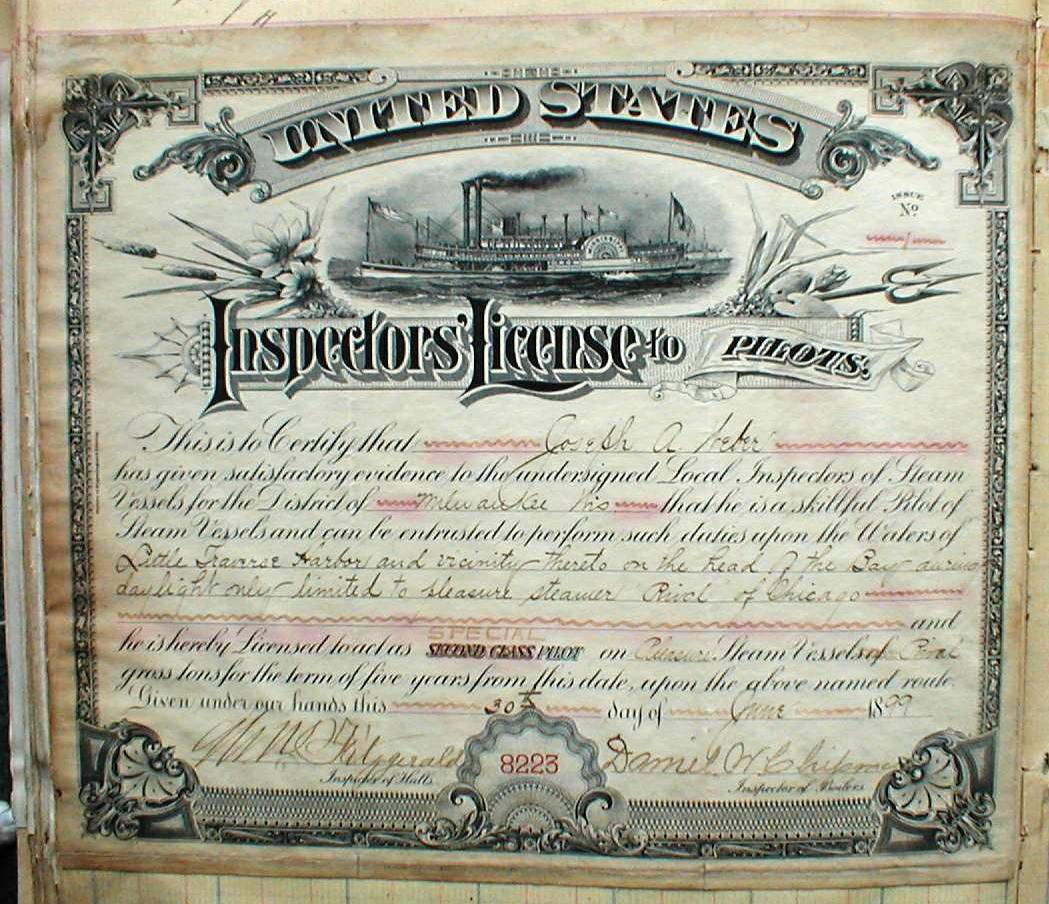 UNITED STATES
ISSUE
No
Inspectors' License to PILOTS.
This is to Certify that Joseph A Weber
has given satisfactory evidence to the undersigned Local Inspectors of Steam
Vessels for the District of Milwaukee Wis that he is a skillful Pilot of
Steam Vessels and can be entrusted to perform such duties upon the Waters of
Little Traverse Harbor and vicinity thereto on the head of the Bay during
daylight only limited to pleasure steamer Rival of Chicago
and
SPECIAL
he is hereby Licensed to act as SECOND CLASS PILOT on Pleasure Steam Vessels of Rival
gross tons for the term of five years from this date, upon the above named route.
Given under our hands this 30th day of June 1899
Fitzgerald 8223 Daniel W Chipman
Inspector of Hulls Inspector of Boilers